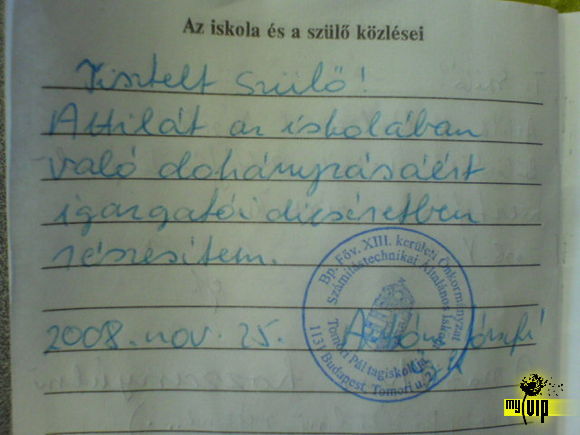 Az iskola és a szülő közlései
Tisztelt Szülő!
Attilát az iskolában
való dohányzásáért
igazgatói dicséretben
részesítem.
2008. nov. 25.
Bp. Főv. XIII. kerületi Önkormányzat
Számítástechnikai Általános Iskola
Tomori Pál tagiskolája
1131 Budapest, Tomori u.
my VIP